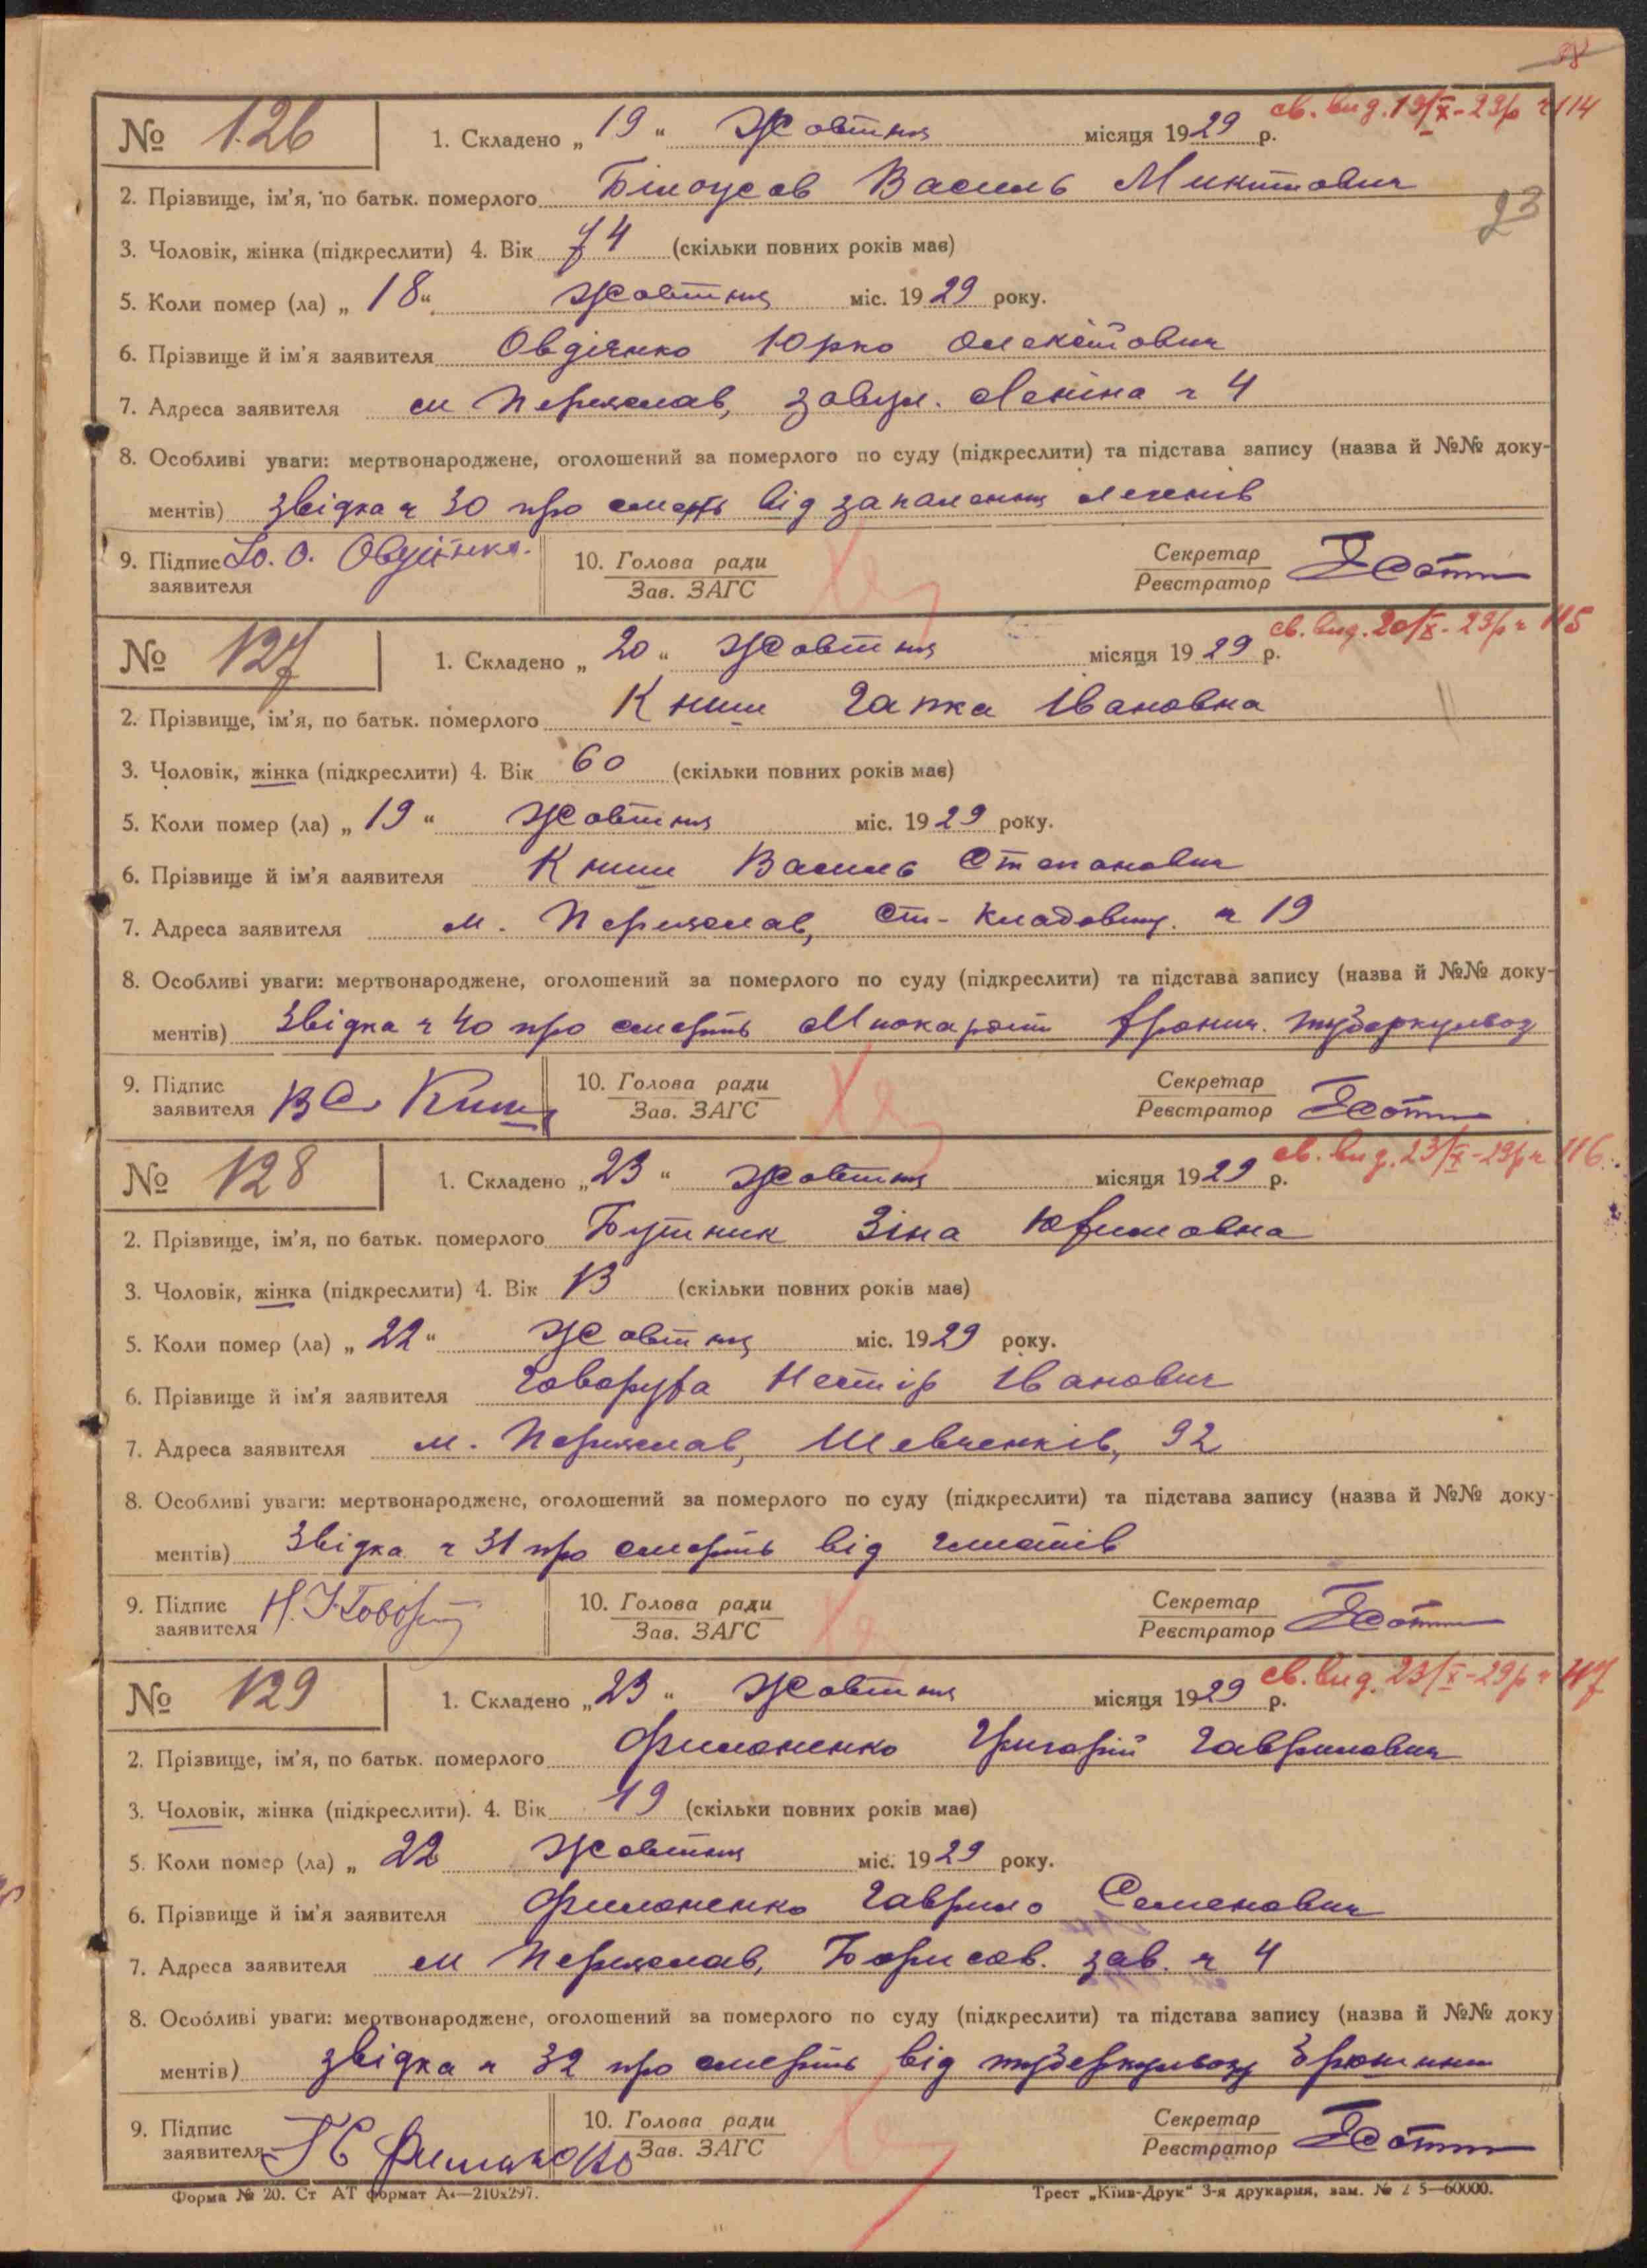 св. вид. 19/X-29р ч 114
№ 126 1. Складено „ 19 “ Жовтня місяця 1929 р.
2. Прізвище, ім’я, по батьк. померлого Білоусов Василь Микитович
23
3. Чоловік, жінка (підкреслити) 4. Вік 74 (скільки повних років має)
5. Коли помер (ла) „ 18 “ Жовтня міс. 1929 року.
6. Прізвище й ім’я заявителя Овдієнко Юрко Олексійович
7. Адреса заявителя м Переяслав, завул. Леніна ч 4
8. Особливі уваги: мертвонароджене, оголошений за померлого по суду (підкреслити) та підстава запису (назва й №№ доку-
ментів) звідка ч 30 про смерть від запалення легенів
9. Підпис заявителя Ю. О. Овдієнко. 10. Голова ради Зав. ЗАГС Секретар Реєстратор
св. вид. 20/X-29р ч 115
№ 127 1. Складено „ 20 “ Жовтня місяця 1929 р.
2. Прізвище, ім’я, по батьк. померлого Книш Гапка Івановна
3. Чоловік, жінка (підкреслити) 4. Вік 60 (скільки повних років має)
5. Коли помер (ла) „ 19 “ Жовтня міс. 1929 року.
6. Прізвище й ім’я заявителя Книш Василь Степанович
7. Адреса заявителя м. Переяслав, Ст-Кладовищ. ч 19
8. Особливі уваги: мертвонароджене, оголошений за померлого по суду (підкреслити) та підстава запису (назва й №№ доку-
ментів) Звідка ч 40 про смерть Миокардит хронич. туберкульоз
9. Підпис заявителя В С Книш 10. Голова ради Зав. ЗАГС Секретар Реєстратор
св. вид. 23/X-29р ч 116
№ 128 1. Складено „ 23 “ Жовтня місяця 1929 р.
2. Прізвище, ім’я, по батьк. померлого Бутник Зіна Юхимовна
3. Чоловік, жінка (підкреслити) 4. Вік 13 (скільки повних років має)
5. Коли помер (ла) „ 22 “ Жовтня міс. 1929 року.
6. Прізвище й ім’я заявителя Говоруха Нестір Іванович
7. Адреса заявителя м. Переяслав, Шевченків, 92
8. Особливі уваги: мертвонароджене, оголошений за померлого по суду (підкреслити) та підстава запису (назва й №№ доку-
ментів) Звідка ч 31 про смерть від глистів
9. Підпис заявителя Н. І Говору 10. Голова ради Зав. ЗАГС Секретар Реєстратор
св. вид. 23/X-29р ч 117
№ 129 1. Складено „ 23 “ Жовтня місяця 1929 р.
2. Прізвище, ім’я, по батьк. померлого Филоненко Григорій Гаврилович
3. Чоловік, жінка (підкреслити). 4. Вік 19 (скільки повних років має)
5. Коли помер (ла) „ 22 Жовтня міс. 1929 року.
6. Прізвище й ім’я заявителя Филоненко Гаврило Семенович
7. Адреса заявителя м Переяслав, Борисов. зав. ч 4
8. Особливі уваги: мертвонароджене, оголошений за померлого по суду (підкреслити) та підстава запису (назва й №№ доку
ментів) звідка ч 32 про смерть від туберкульозу брюшини
9. Підпис заявителя Филоненко 10. Голова ради Зав. ЗАГС Секретар Реєстратор
Форма № 20. Ст АТ формат А₄—210x297. Трест „Київ-Друк“ 3-я друкарня, зам. № 5—60000.